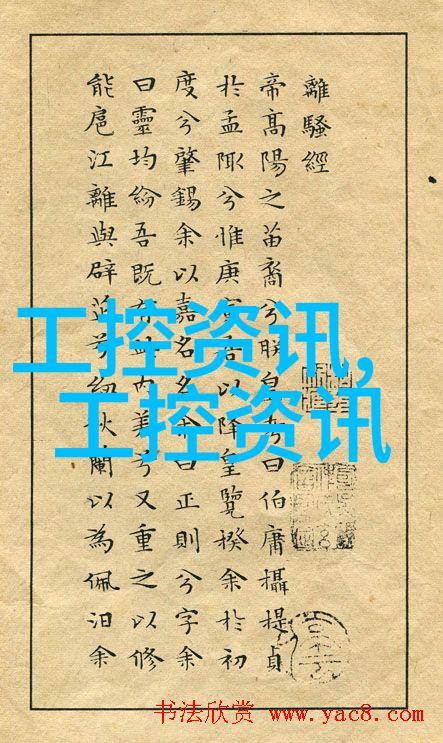 離騷經
帝高陽之苗裔兮朕皇考曰伯庸攝提貞
於孟陬兮惟庚寅吾以降皇覽揆余於初
度兮肇錫余以嘉名名余曰正則兮字余
曰靈均紛吾既有此内美兮又重之以修
能扈江離與辟芷兮紉秋蘭以為佩汩余
工控资讯,
工控资讯
书法欣赏 www.yac8.com